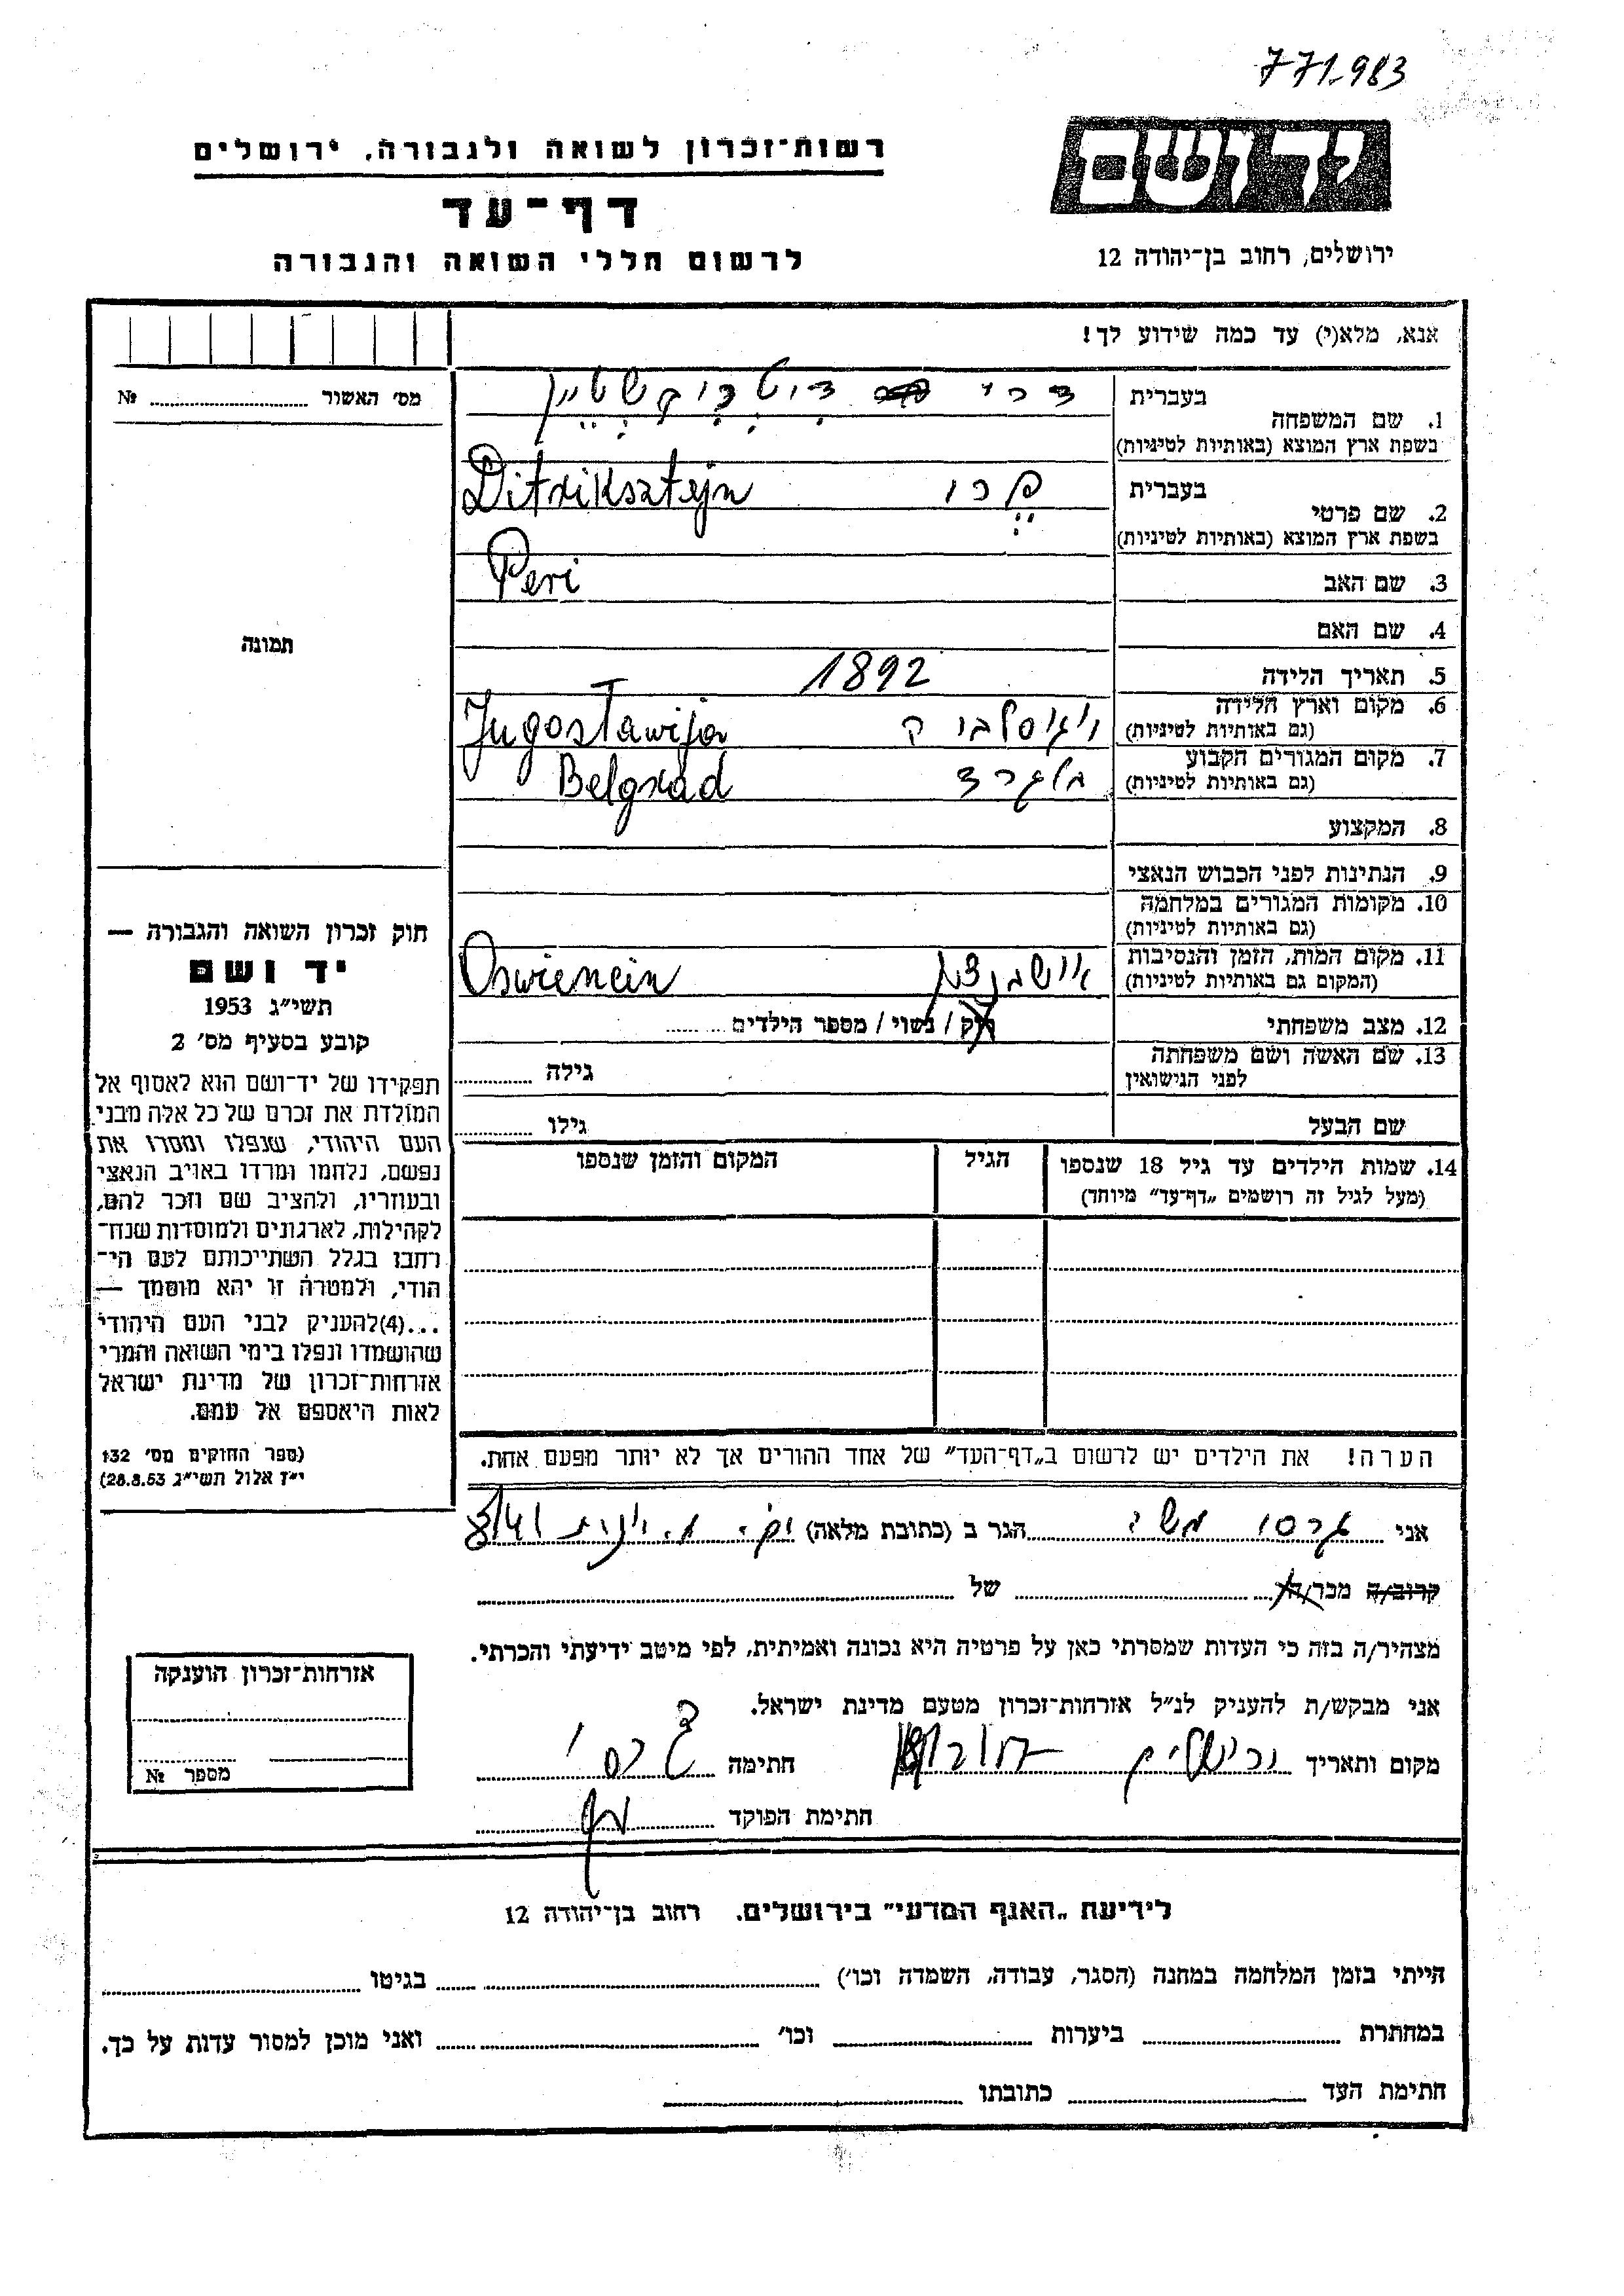 771-983
ידושם
רשות־זכרון לשואה ולגבורה, ירושלים
דף־עד
לרשום חללי השואה והגבורה
ירושלים, רחוב בן־יהודה 12
אנא, מלא(י) עד כמה שידוע לך!
מס׳ האשור № 
בעברית
1. שם המשפחה
דיטריקשטיין
בשפת ארץ המוצא (באותיות לטיניות)
Ditriksztejn
בעברית
2. שם פרטי
בשפת ארץ המוצא (באותיות לטיניות)
Peri
3. שם האב
4. שם האם
5. תאריך הלידה
1892
6. מקום וארץ הלידה
(גם באותיות לטיניות)
Jugostawija
7. מקום המגורים הקבוע
(גם באותיות לטיניות)
בלגרד Belgrad
8. המקצוע
9. הנתינות לפני הכבוש הנאצי
10. מקומות המגורים במלחמה
(גם באותיות לטיניות)
11. מקום המות, הזמן והנסיבות
(המקום גם באותיות לטיניות)
Oswiencin
12. מצב משפחתי
רוק / נשוי / מספר הילדים
13. שם האשה ושם משפחתה
לפני הנישואין
גילה
שם הבעל
גילו
14. שמות הילדים עד גיל 18 שנספו
(מעל לגיל זה רושמים „דף־עד״ מיוחד)
הגיל
המקום והזמן שנספו
הערה! את הילדים יש לרשום ב„דף־העד״ של אחד ההורים אך לא יותר מפעם אחת.
תמונה
חוק זכרון השואה והגבורה —
יד ושם
תשי״ג 1953
קובע בסעיף מס׳ 2
תפקידו של יד־ושם הוא לאסוף אל
המולדת את זכרם של כל אלה מבני
העם היהודי, שנפלו ומסרו את
נפשם, נלחמו ומרדו באויב הנאצי
ובעוזריו, ולהציב שם וזכר להם,
לקהילות, לארגונים ולמוסדות שנח־
רבו בגלל השתייכותם לעם הי־
הודי, ולמטרה זו יהא מוסמך —
...(4)להעניק לבני העם היהודי
שהושמדו ונפלו בימי השואה והמרי
אזרחות־זכרון של מדינת ישראל
לאות היאספם אל עמם.
(ספר החוקים מס׳ 132
י״ז אלול תשי״ג 28.8.53)
אני משה הגר ב (כתובת מלאה)
קרוב/ה מכר/ה של
מצהיר/ה בזה כי העדות שמסרתי כאן על פרטיה היא נכונה ואמיתית, לפי מיטב ידיעתי והכרתי.
אני מבקש/ת להעניק לנ״ל אזרחות־זכרון מטעם מדינת ישראל.
מקום ותאריך חתימה
חתימת הפוקד
אזרחות־זכרון הוענקה
מספר №
לידיעת „האגף המדעי״ בירושלים, רחוב בן־יהודה 12
הייתי בזמן המלחמה במחנה (הסגר, עבודה, השמדה וכו׳) בגיטו
במחתרת ביערות וכו׳ ואני מוכן למסור עדות על כך.
חתימת העד כתובתו